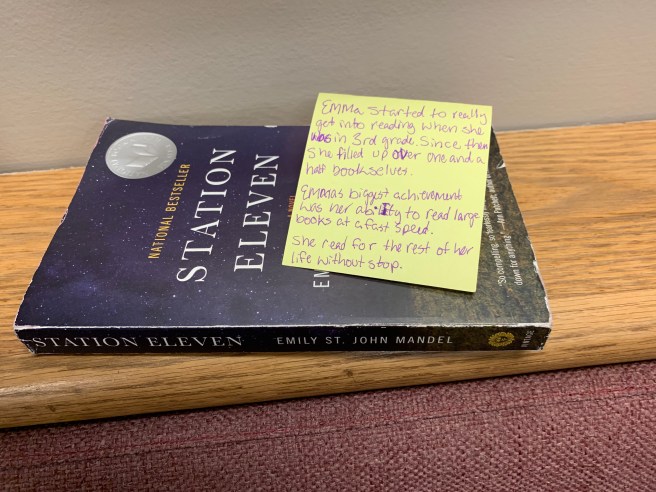 NATIONAL BESTSELLER
STATION
ELEVEN
A NOVEL
EM
Emma Started to really
get into reading when she
was in 3rd grade. Since then
she filled up over one and a
half bookselves.
Emmas biggest achievement
was her ability to read large
books at a fast speed.
She read for the rest of her
life without stop.
"So compelling, so
down for anything."
STATION ELEVEN
EMILY ST. JOHN MANDEL